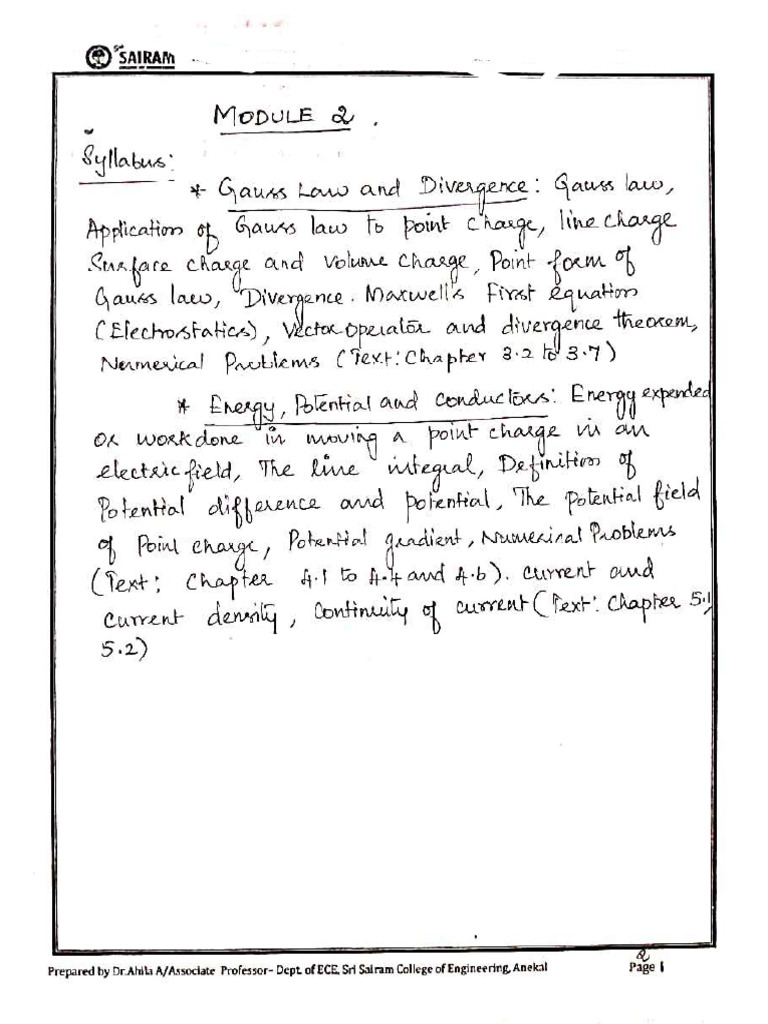 Sri SAIRAM
MODULE 2.
Syllabus:
* Gauss Law and Divergence: Gauss law,
Application of Gauss law to point charge, line charge
Surface charge and volume charge, Point form of
Gauss law, Divergence. Maxwell's First equation
(Electrostatics), Vector Operator and divergence theorem,
Numerical Problems (Text: Chapter 3.2 to 3.7)
* Energy, Potential and conductors: Energy expended
or workdone in moving a point charge in an
electric field, The line integral, Definition of
Potential difference and potential, The potential field
of Point charge, Potential gradient, Numerical Problems
(Text: Chapter 4.1 to 4.4 and 4.6). current and
current density, Continuity of current (Text: Chapter 5.1,
5.2)
2
Prepared by Dr.Ahila A/Associate Professor- Dept. of ECE, Sri Sairam College of Engineering, Anekal Page 1